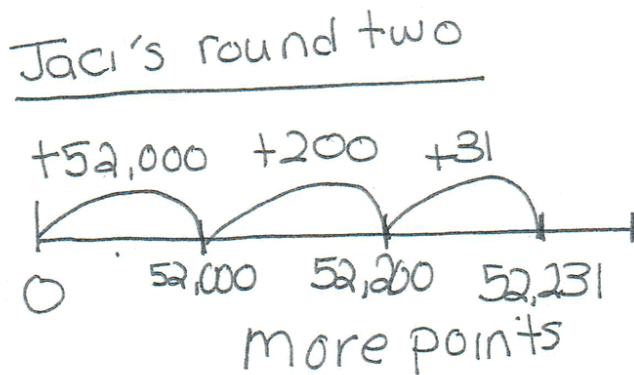 Jaci's round two
+52,000 +200 +31
0 52,000 52,200 52,231
more points